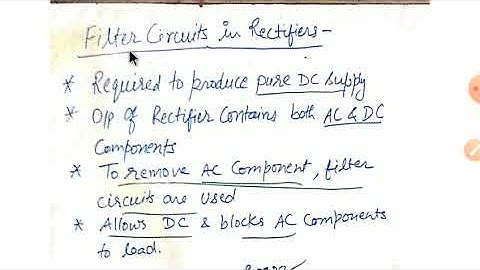 Filter Circuits in Rectifiers-
* Required to produce pure DC supply
* O/p of Rectifier Contains both AC & DC
Components
* To remove AC Component, filter
circuits are used
* Allows DC & blocks AC Components
to load.